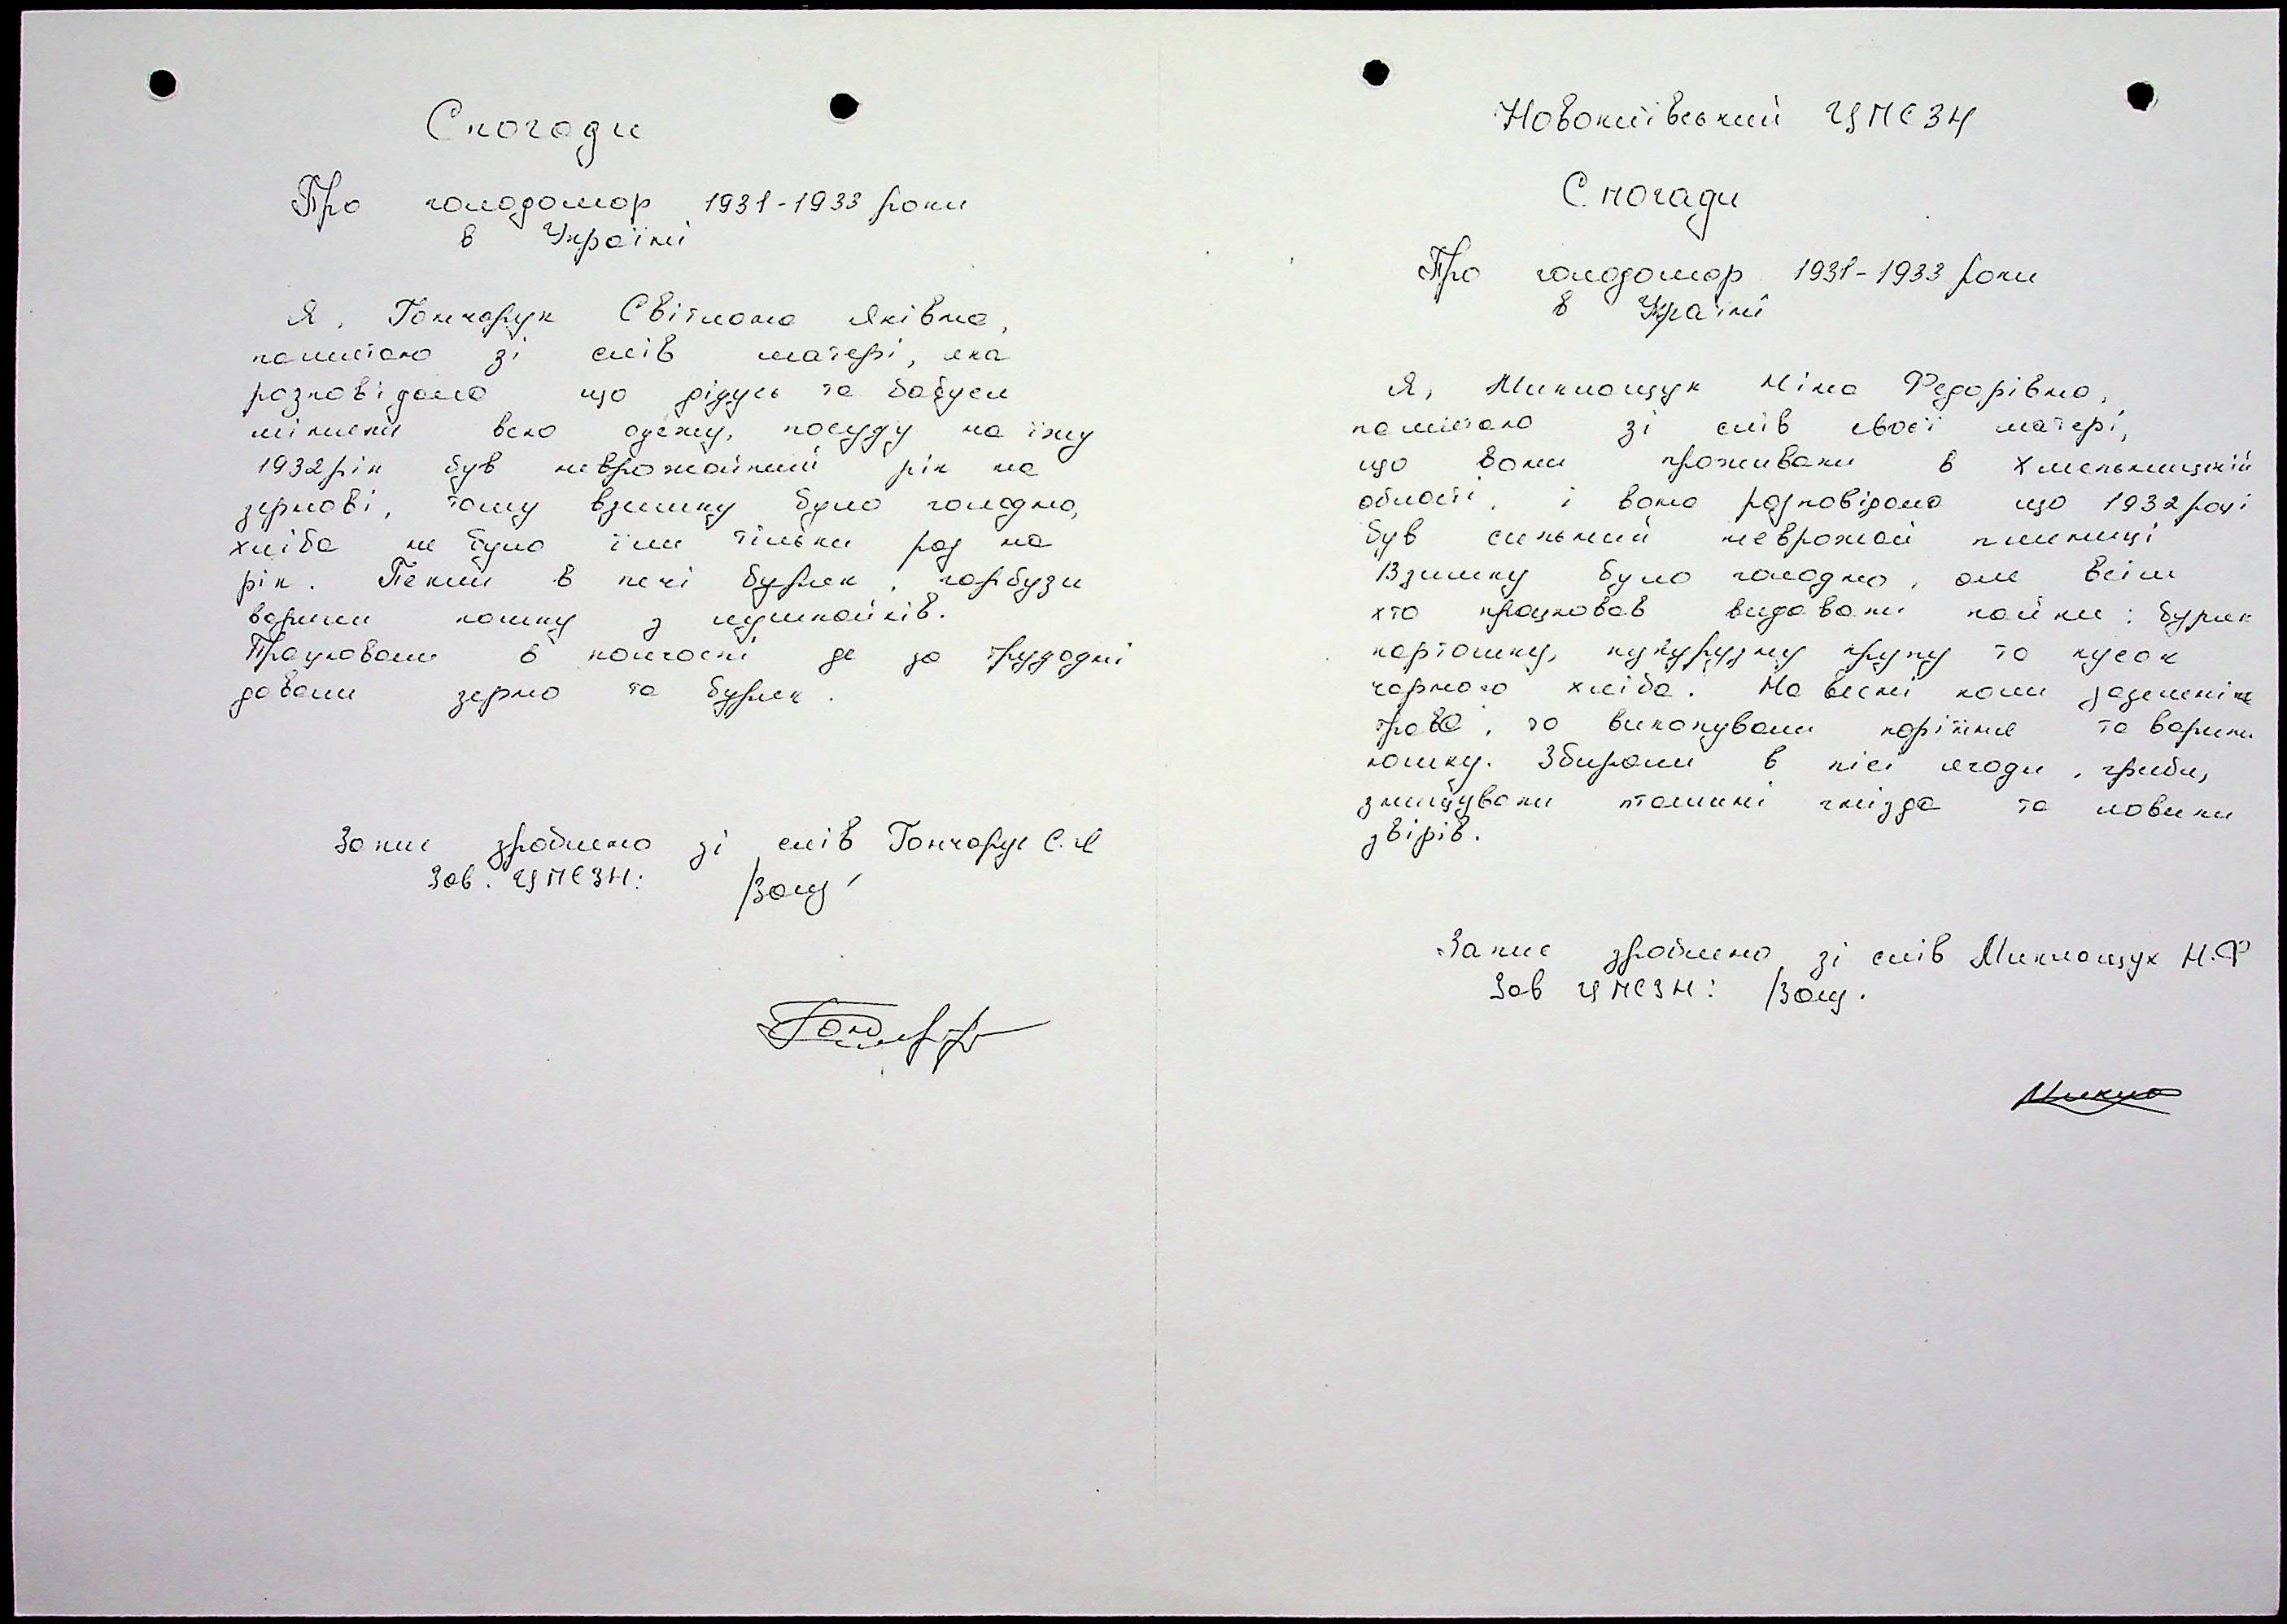 Спогади
Про голодомор 1931-1933 роки
в Україні
Я, Гончарук Світлана Яківна,
памятаю зі слів матері, яка
розповідала що дідусь та бабуся
міняли всю одежу, посуду на їжу
1932рік був неврожайний рік на
зернові, тому взимку було голодно,
хліба не було їли тільки раз на
рік. Пекли в печі буряк, гарбузи
варили юшку з лушпайків.
Працювали в колгоспі де за трудодні
давали зерно та буряк.
Запис зроблено зі слів Гончарук С.Я
Зав. ЦПСЗН:
Новокиївський ЦПСЗН
Спогади
Про голодомор 1931-1933 роки
в Україні
Я, Миклащук Ніна Федорівна,
памятаю зі слів своєї матері,
що вони проживали в Хмельницькій
області, і вона розповідала що 1932році
був сильний неврожай пшениці
Взимку було голодно, але всім
хто працював видавали пайки: буряк
картошку, кукурузну крупу та кусок
чорного хліба. На весні коли зазеленіла
трава, то викопували коріння та варили
юшку. Збирали в лісі ягоди, гриби,
знищували пташині гнізда та ловили
звірів.
Запис зроблено зі слів Миклащук Н.Ф
Зав ЦПСЗН: